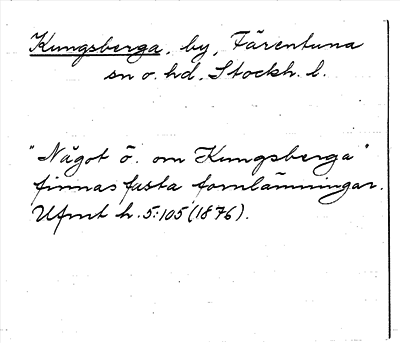 Kungsberga, by, Färentuna
sn o. hd, Stockh. l.
"Något ö. om Kungsberga"
finnas fasta fornlämningar.
Ufmt h. 5:105 (1876).